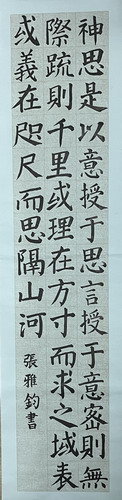 神思是以意授于思言授于意密則無
際疏則千里或理在方寸而求之域表
或義在咫尺而思隔山河
張雅鈞書